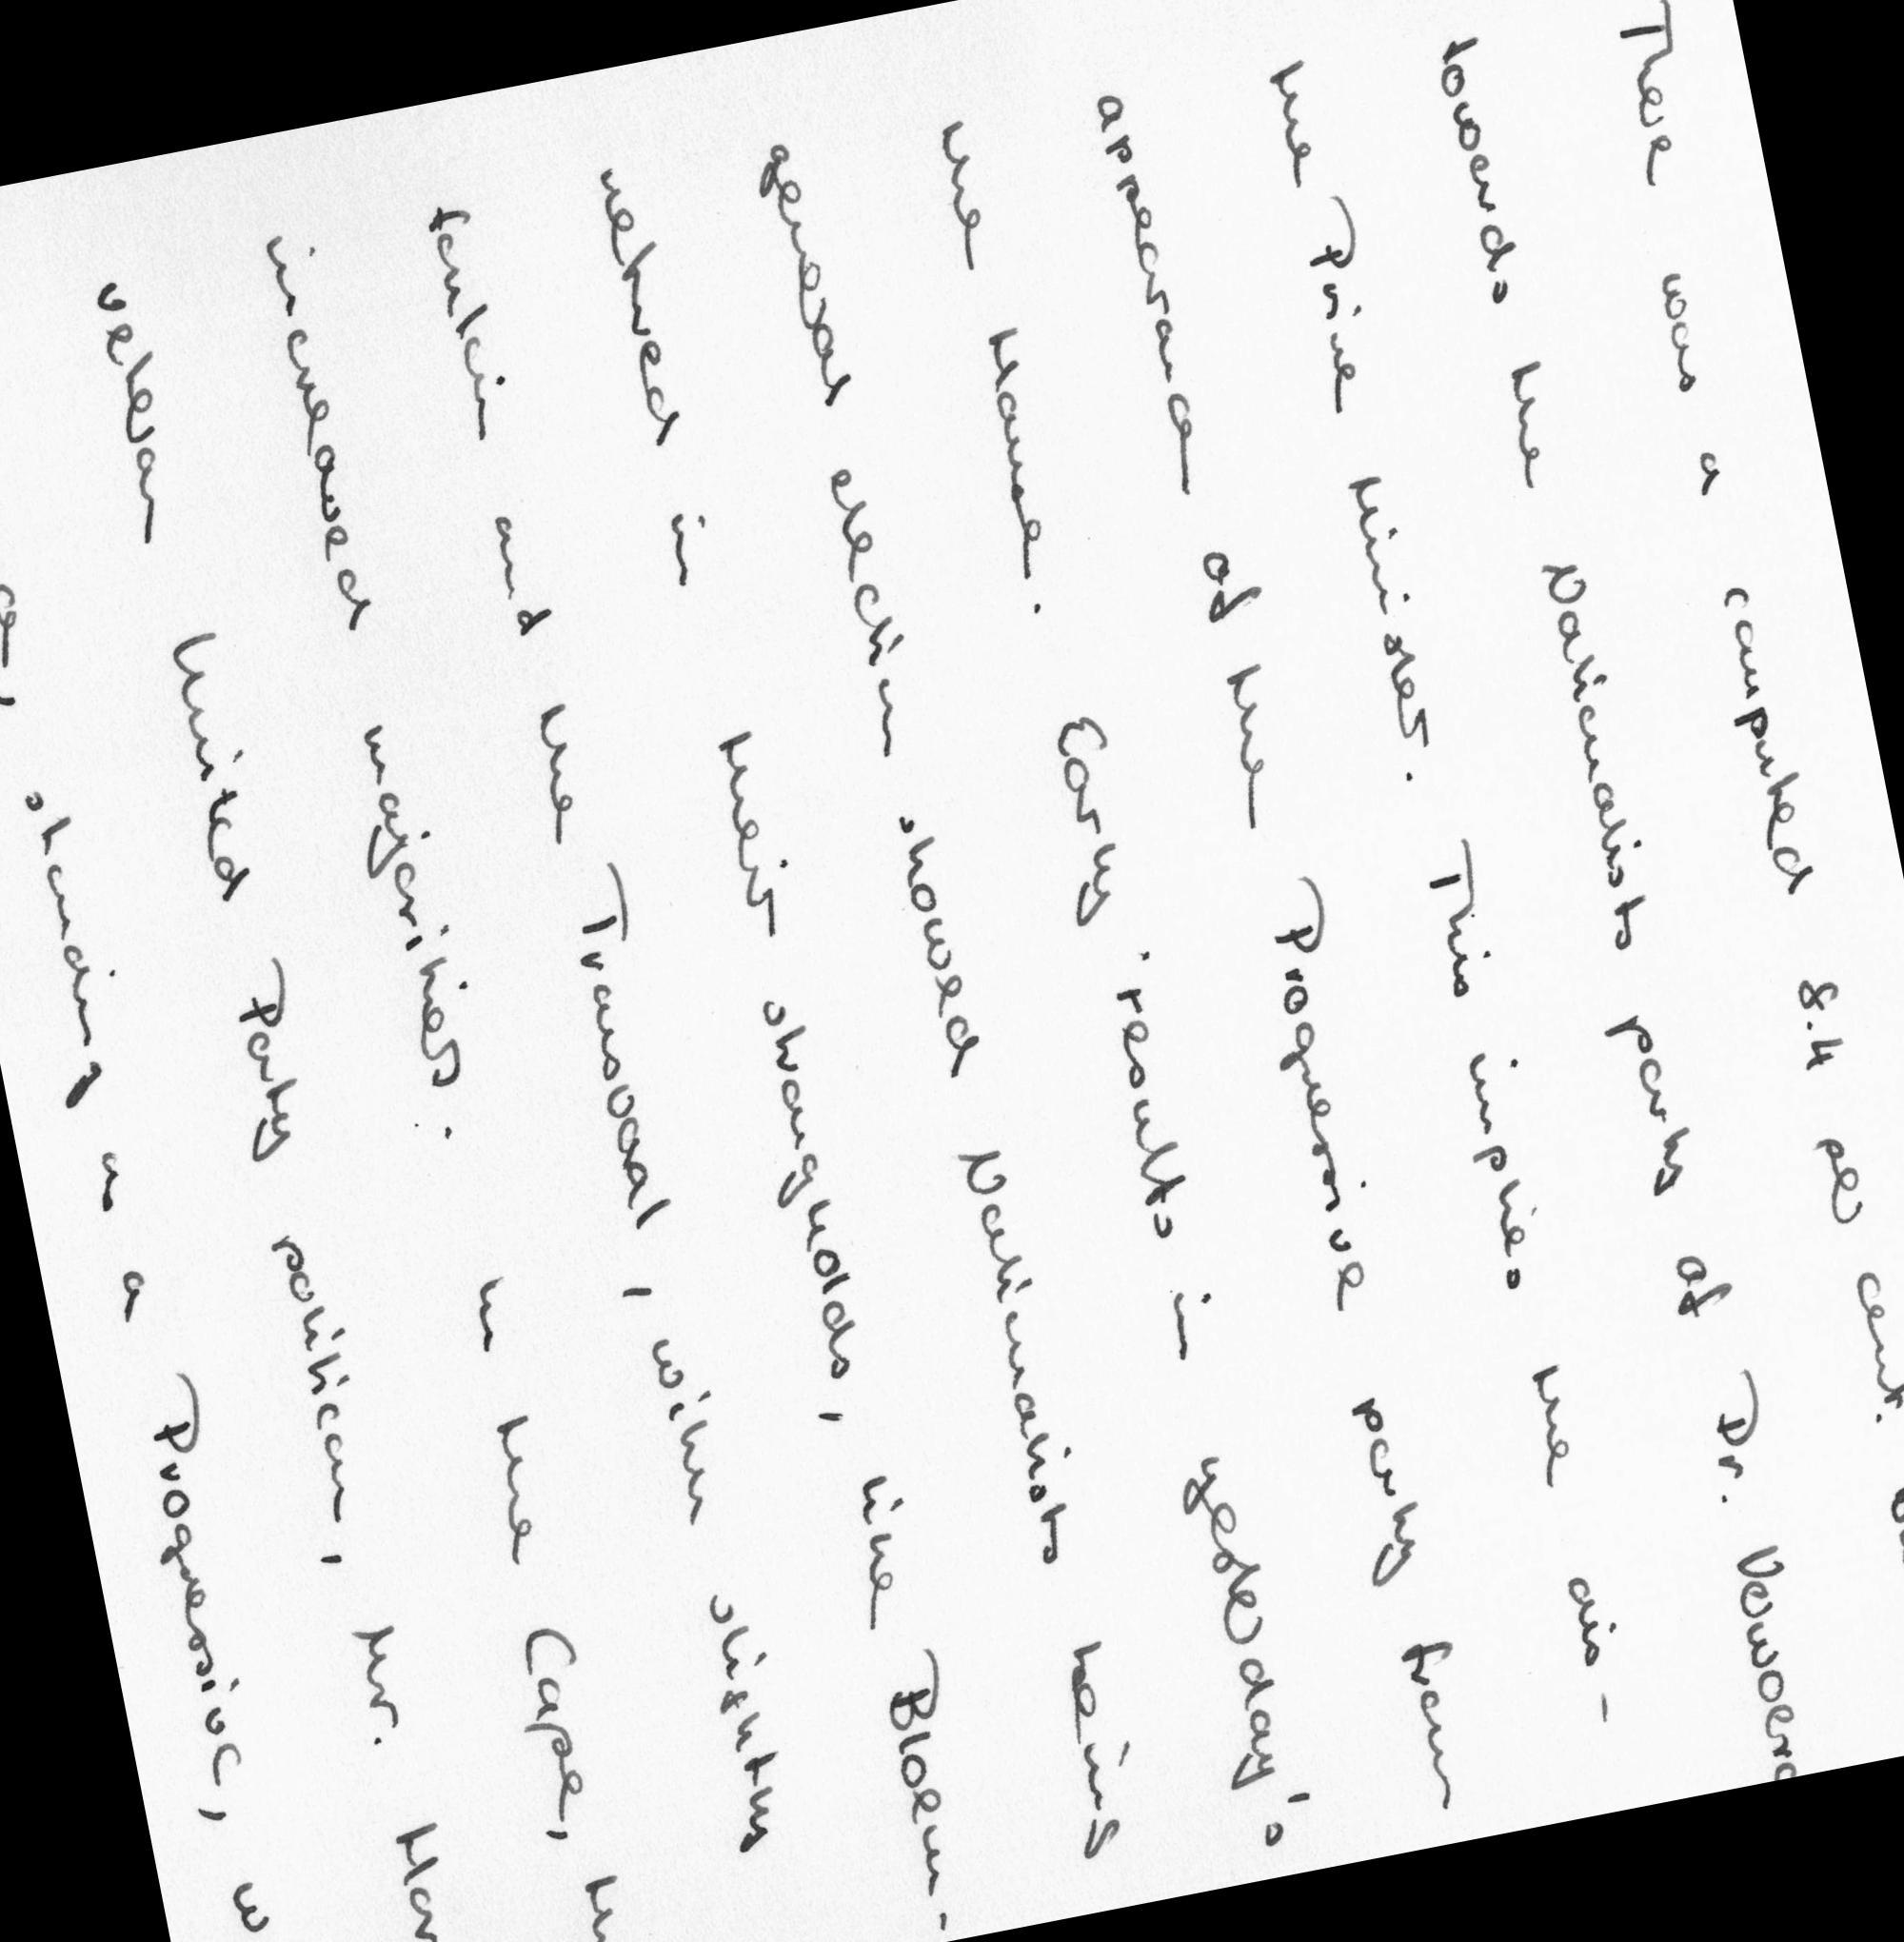 There was a computed 8.4 per cent.
towards the Nationalist party of Dr. Verwoerd
the Prime Minister. This implies the dis-
appearance of the Progressive party from
the House. Early results in yesterday's
general election showed Nationalists being
returned in their strongholds, like Bloem-
fontein and the Transvaal, with slightly
increased majorities. In the Cape,
veteran United Party politician, Mr.
standing as a Progressive,